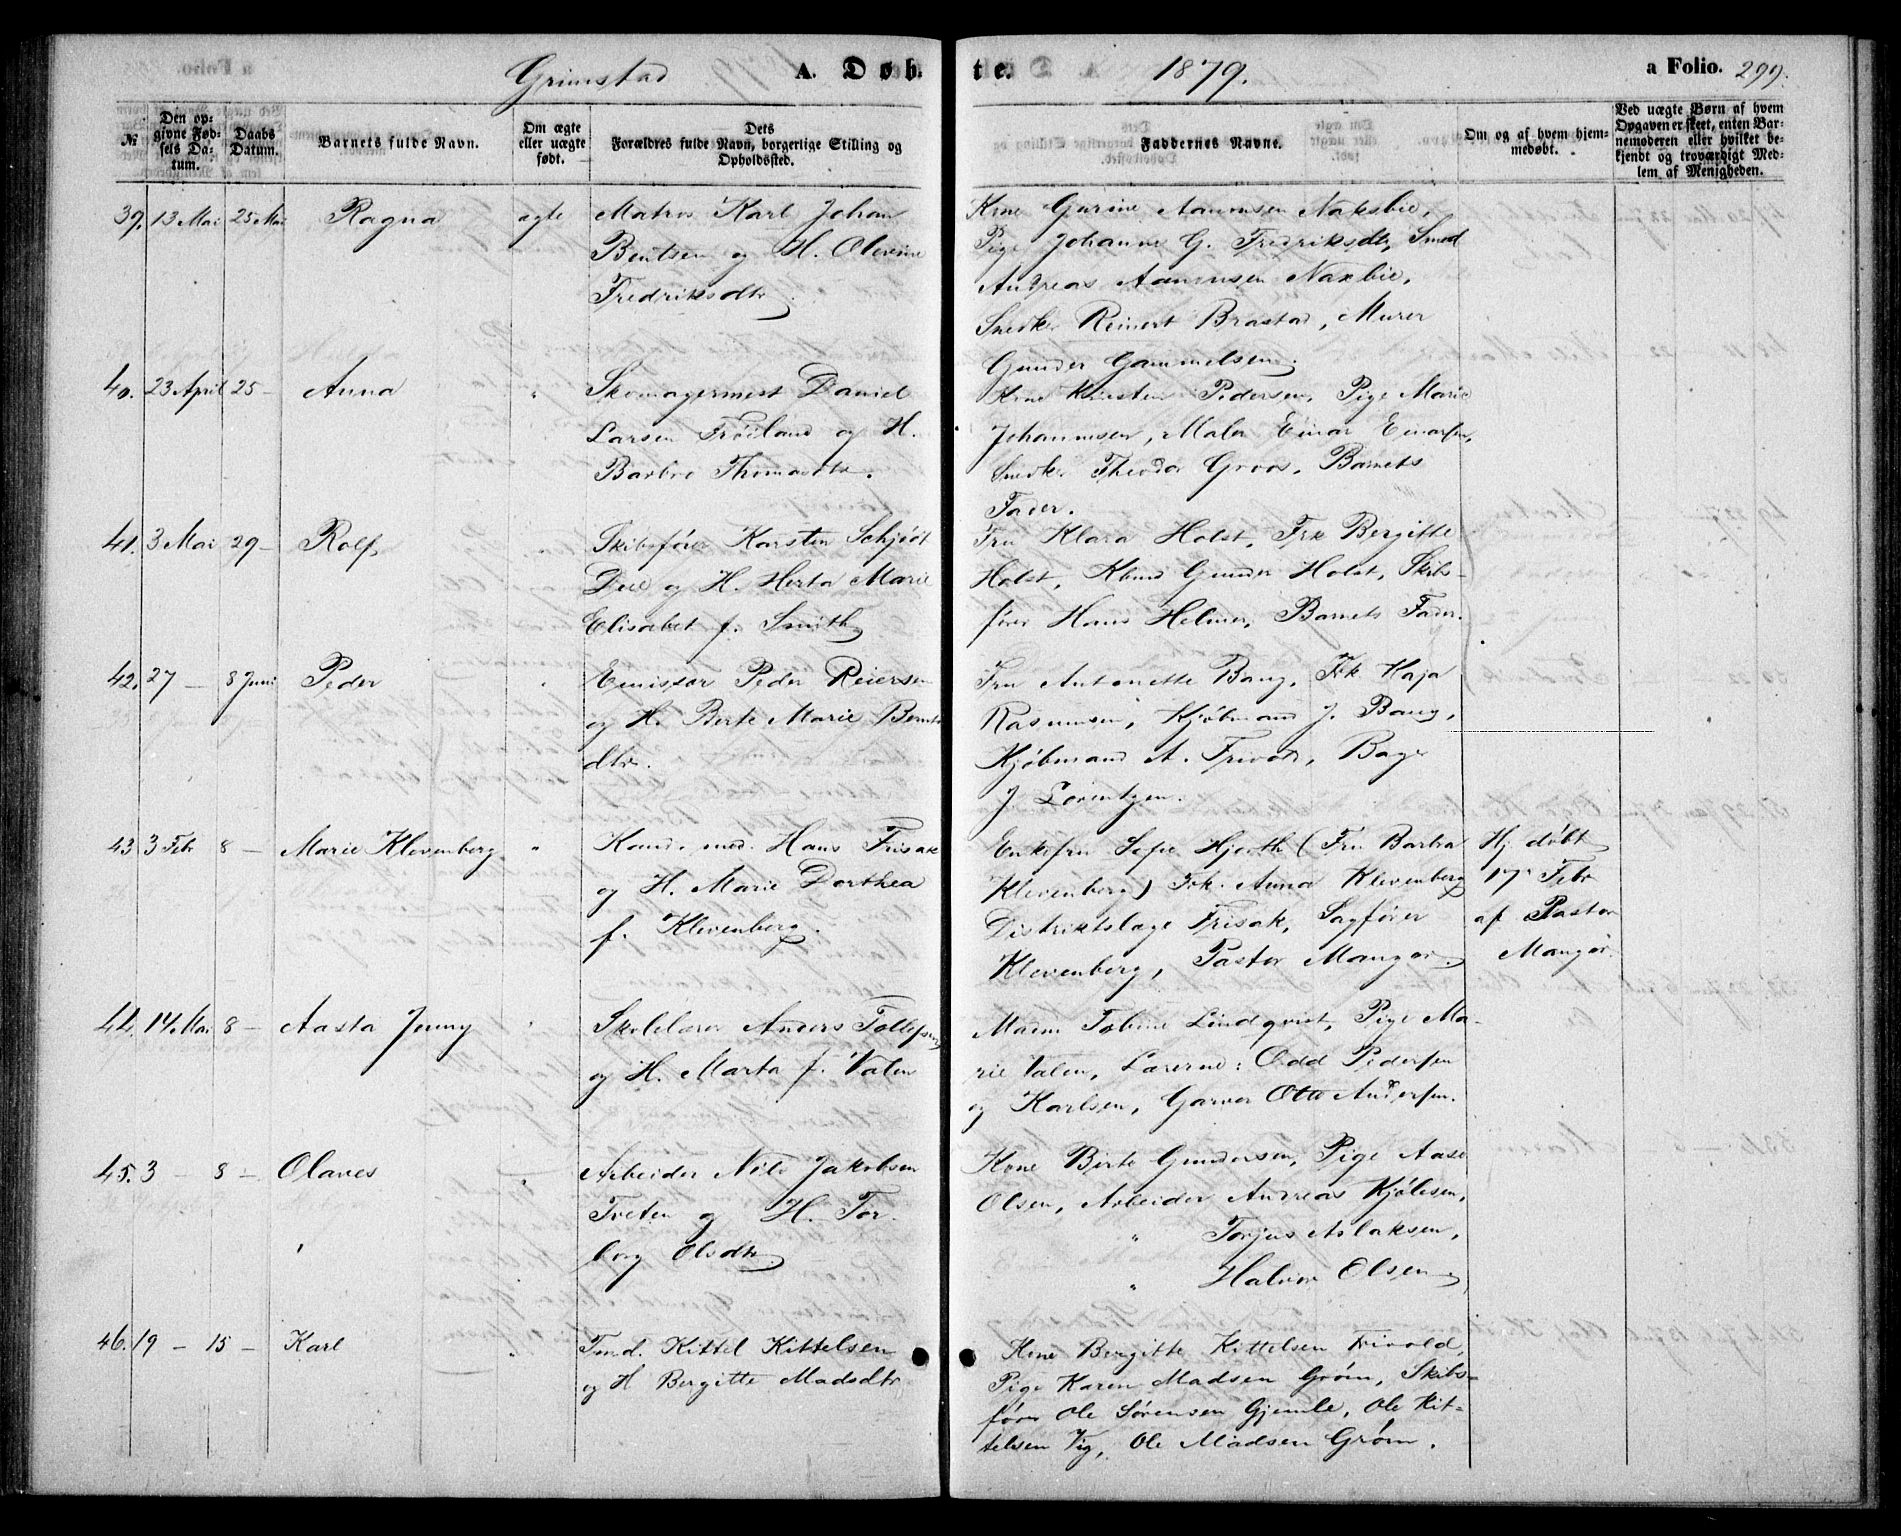 Grimstad A. Døb-
te. 1879. a Folio. 299.
№ Den opgivne Fødsels Datum. Daabs Datum. Barnets fulde Navn. Om ægte eller uægte født. Dets Forældres fulde Navn, borgerlige Stilling og Opholdssted.
Faddernes Navne. Om og af hvem hjemmedøbt. Ved uægte Børn af hvem Opgaven er skeet, enten Barnemoderen eller hvilket bekjendt og troværdigt Medlem af Menigheden.
39. 13 Mai 25 Mai Ragna ægte Matros Karl Johan
Bentsen og H. Olevine
Fredriksdtr.
Kone Gurine Aanonsen Naksbie,
Pige Johanne G. Fredriksdtr, Smed
Andreas Aanonsen Naxbie,
Snedker Reinert Brastad, Murer
Gunder Gammelsen.
40. 23 April 25 - Anna " Skomagermest Daniel
Larsen Frøiland og H.
Barbro Thomasdtr.
Kone Kirsten Pedersen, Pige Marie
Johannesen, Maler Einar Einarsen,
Snedk. Theodor Groos, Barnets
Fader.
41. 3 Mai 29 - Rolf " Skibsfører Karsten Schjøt
Due og H. Herta Marie
Elisabet f. Smith
Fru Klara Holst, Frk Bergitte
Holst, Kbmd Gunder Holst, Skibs-
fører Hans Helmer, Barnets Fader.
42. 27 - 8 Juni Peder " Emissær Peder Reiersen
og H. Berte Marie Bernts
dtr.
Fru Antonette Bang, Frk Kaja
Rasmusen, Kjøbmand J. Bang,
Kjøbmand A. Frivold, Bager
J. Lorentzen.
43 3 Febr 8 - Marie Klevenberg " Kand. med. Hans Frisak
og H. Marie Dorthea
f. Klevenberg.
Enkefru Sofie Hjorth (Fru Barbra
Klevenberg) Frk. Anna Klevenberg
Distriktslæge Frisak, Sagfører
Klevenberg, Pastor Mangor.
Hj. døbt
17 Febr
af Pastor
Mangor.
44. 14 Mai 8 - Aasta Jenny " Skolelærer Anders Tollefsen
og H. Marta f. Valen
Madm Tobine Lindqvist, Pige Ma-
rie Valen, Lærerne: Odd Pedersen
og Karlsen, Garver Otto Andersen.
45. 3 - 8 - Olaves " Arbeider Nils Jakobsen
Tveten og H. Tor-
borg Olsdtr.
Kone Birte Gundersen, Pige Aase
Olsen, Arbeider Andreas Kjølesen,
" Torjus Aslaksen,
" Halvor Olsen.
46. 19 - 15 - Karl " Tmd. Kittel Kittelsen
og H Bergitte Madsdtr
Kone Bergitte Kittelsen Frivold,
Pige Karen Madsen Grøm, Skibs-
fører Ole Sørensen Gjemle, Ole Kit-
telsen Vig, Ole Madsen Grøm.